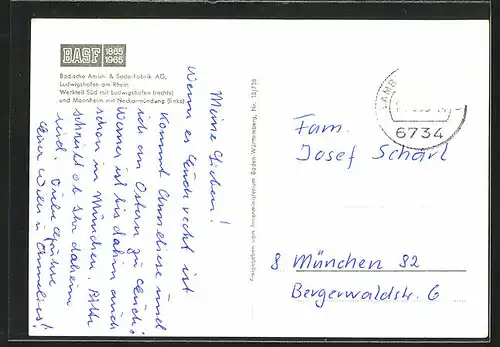 BASF 1865 1965
Badische Anilin- & Soda-Fabrik AG,
Ludwigshafen am Rhein
Werkteil Süd mit Ludwigshafen (rechts)
und Mannheim mit Neckarmündung (links)
Meine Lieben!
Wenn es Euch recht ist
kommt Anneliese und
ich an Ostern zu Euch.
Werner ist bis dahin auch
schon in München. Bitte
schreibt ob Ihr daheim
seid. Viele Grüße
Euer Willi u. Annelies!
Freigegeben vom Innenministerium Baden-Württemberg, Nr. 10/726
LAMB
6734
Fam.
Josef Scharl
8 München 82
Bergerwaldstr. 6